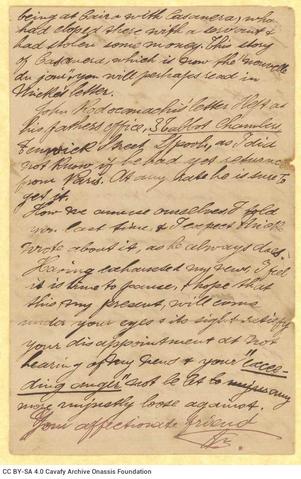 being at Cairo with Casanera, who
had eloped there with a servant &
had stolen some money. This story
of Casanera, which is now the nouvelle
du jour, you will perhaps read in
Mickè's letter.
John Rodocanachi's letter I left at
his father's office, 3 Talbot Chambers
Fenwick Street, L'pool, as I did
not know if he had yet returned
from Paris. At any rate he is sure to
get it.
How we amuse ourselves I told
you last time, & I expect Mické
wrote about it, as he always does.
Having exhausted my news, I feel
it is time to pause, & hope that
this, my present, will come
under your eyes & its sight rectify
your disappointment at not
hearing of my news & your "excee-
ding anger" not be let to any
more unjustly loose against
Your affectionate friend
CC BY-SA 4.0 Cavafy Archive Onassis Foundation